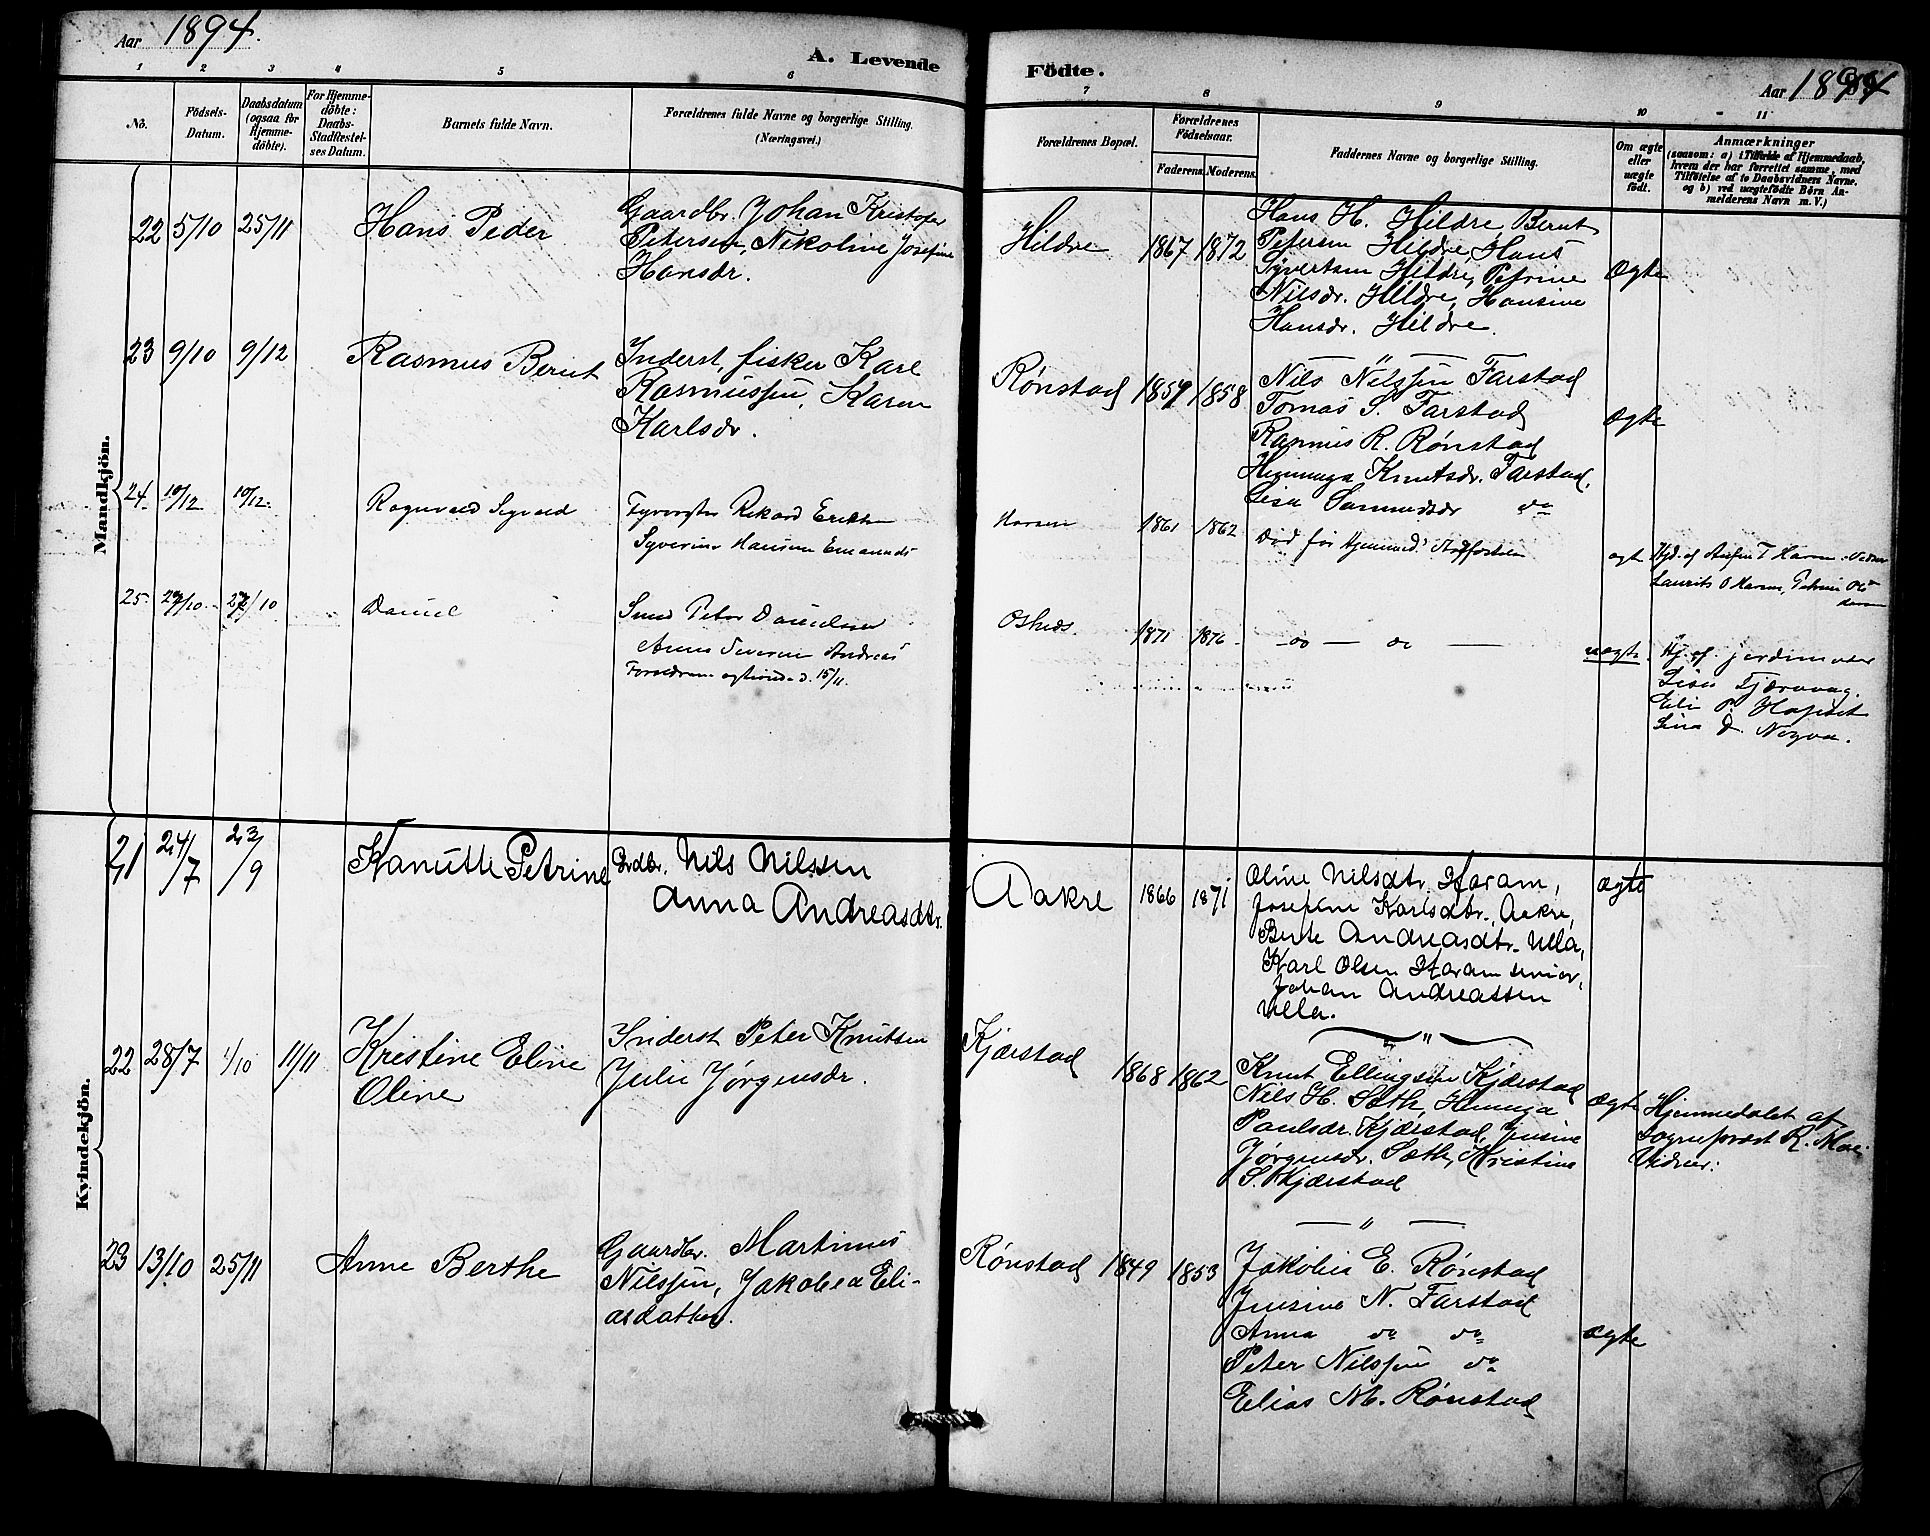 Aar 1894.
A. Levende
Födte.
Aar 1894
1 2 3 4 5 6 7 8 9 10 11
No.
Födsels-
Datum.
Daabsdatum
(ogsaa for
Hjemme-
döbte).
For Hjemme-
döbte:
Daabs-
Stadfæstel-
ses Datum.
Barnets fulde Navn.
Forældrenes fulde Navne og borgerlige Stilling.
(Næringsvei.)
Forældrenes Bopæl.
Forældrenes
Födselsaar.
Faderens. Moderens.
Faddernes Navne og borgerlige Stilling.
Om ægte
eller
uægte
födt.
Anmærkninger
(saasom: a) i Tilfælde af Hjemmedaab,
hvem der har forrettet samme, med
Tilföielse af to Daabsvidners Navne.
og b) ved uægtefödte Börn An-
melderens Navn m. V.)
Mandkjön.
22 5/10 25/11
Hans Peder
Gaardbr. Johan Kristofer
Petersen, Nikoline Josefine
Hansdr.
Hildre 1867 1872
Hans H. Hildre, Bernt
Petersen Hildre, Hans
Syvertsen Hildre, Petrine
Nilsdr. Hildre, Hansine
Hansdr. Hildre.
Ægte
23 9/10 9/12
Rasmus Bernt
Inderst, fisker Karl
Rasmussen, Karen
Karlsdr.
Rønstad 1859 1858
— " —
Nils Nilssen Farstad
Tomas S. Farstad
Rasmus R. Rønstad
Hemminga Knutsdr. Farstad,
Lisa do
Ægte
24. 10/12 10/12
Ragnvald Sigvald
Fyrvogter Rikard
Syverine Hansine
1861 1862
Død før
ægt
Laurits O Haram, Petrine
25 27/10 27/10
Daniel
Peter Danielsen
Anne Severine Andreas
15/11.
1871 1876
— do — do —
uægte.
Hj. af jordemoder
Kvindekjön.
21 24/7 23/9
Kanutte Petrine
Grdbr. Nils Nilssen
Anna Andreasdtr.
Aakre 1866 1871
Oline Nilsdtr. Haram,
Josefine Karlsdtr. Aakre,
Berte Andreasdtr. Ulla,
Karl Olsen Haram senior,
Johan Andreassen
Ulla.
ægte
22 28/7 1/10 11/11
Kristine Eline
Oline
Inderst Peter Knutsen
Julie Jørgensdr.
Kjærstad 1868 1862
"
Knut Ellingsen Kjærstad
Nils H. Sæth, Heminga
Paulsdr. Kjærstad, Jensine
Jørgensdr. Sæth, Kristine
S. Kjærstad
Ægte
Hjemmedøbt af
Sognepræst R.
Vidner:
23 13/10 25/11
Anne Berthe
Gaardbr. Martinus
Nilssen, Jakobea Eli-
asdatter.
Rønstad 1849 1853
— " —
Jakobea E. Rønstad
Jensine N. Farstad
Anna do do
Peter Nilssen do
Elias M. Rønstad
Ægte